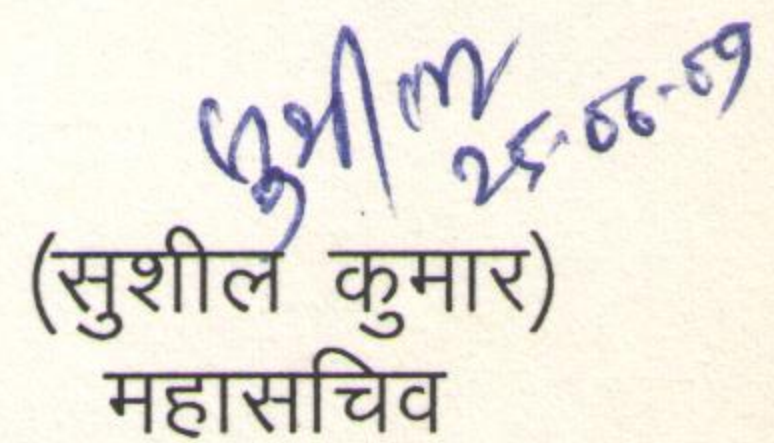 सुशील
25-06-09
(सुशील कुमार)
महासचिव